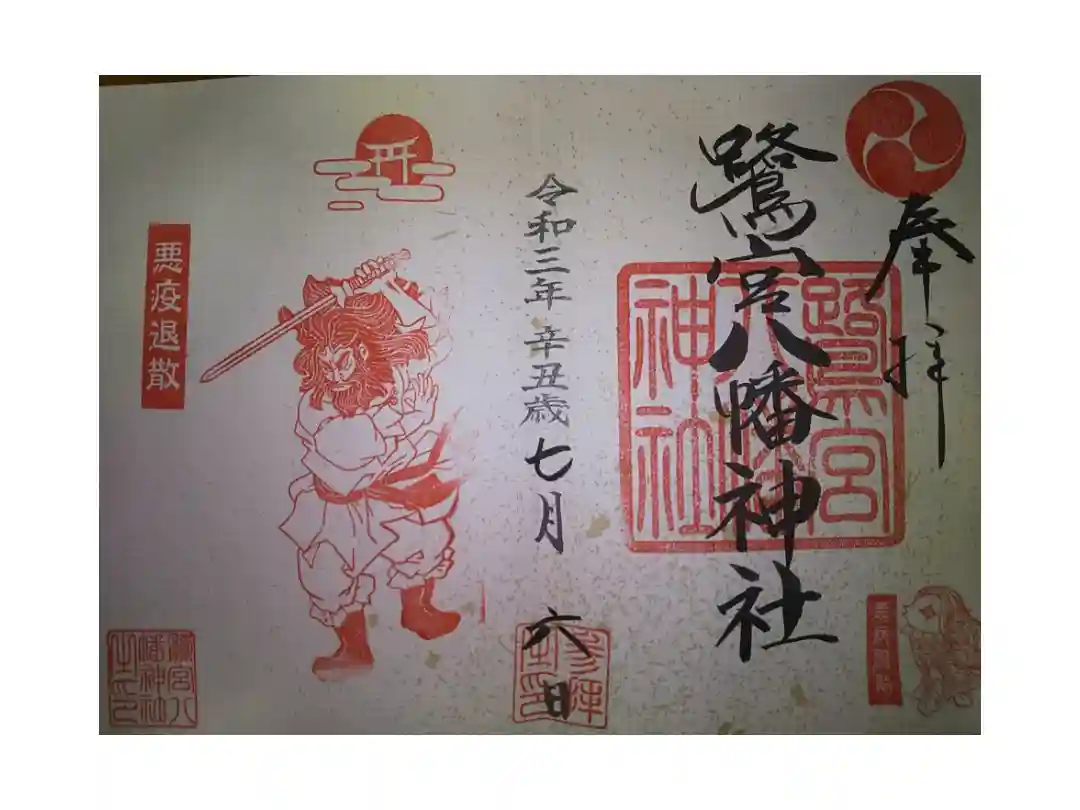 奉拝
鷺宮八幡神社
鷺宮
八幡
神社
令和三年 辛丑歳七月 六日
参拝
之印
悪疫退散
鷺宮八
幡神社
之印